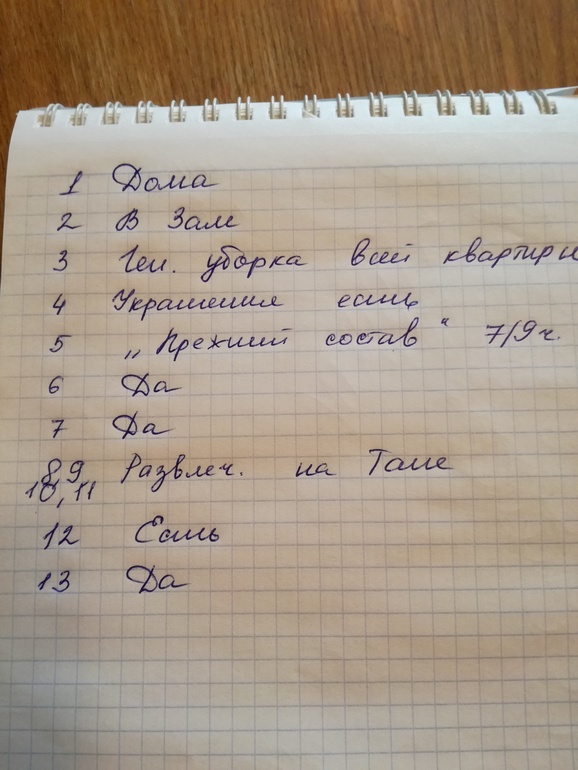 1 Дома
2 В Зале
3 Ген. уборка всей квартиры
4 Украшения есть
5 „Прежний состав“ 7/9ч.
6 Да
7 Да
8,9 Развлеч. на Тане
10,11
12 Есть
13 Да